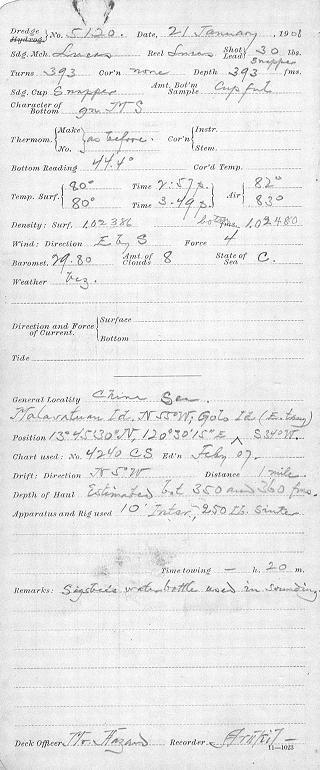 Dredge No. 5120. Date, 21 January, 1908
Hydrog.
Sdg. Mch. Lucas Reel Lucas Shot Lead 30 lbs.
Snapper
Turns 393 Cor'n none Depth 393 fms.
Sdg. Cup Snapper Amt. Bot'm Sample Cupful
Character of Bottom gn. M S
Thermom. Make No. as before. Cor'n Instr. Stem.
Bottom Reading 44.4° Cor'd Temp.
Temp. Surf. 80° Time 2:57 p. Air 82°
80° Time 3.49 p. 83°
Density: Surf. 1.02386 bottom 1.02480
Wind: Direction E by S Force 4
Baromet. 29.80 Amt. of Clouds 8 State of Sea C.
Weather bcz.
Direction and Force of Current. Surface
Bottom
Tide
General Locality China Sea
Malavatuan Id. N 55° W, Golo Id (E. tang)
Position 13° 45' 30" N, 120° 30' 15" E S 34° W.
Chart used: No. 4240 CS Ed'n Feby 07.
Drift: Direction N 5° W Distance 1 mile.
Depth of Haul Estimated bet 350 and 360 fms.
Apparatus and Rig used 10' Inter, 250 lb. sinker
Time towing — h. 20 m.
Remarks: Sigsbee's water bottle used in sounding.
Deck Officer Mr. Hazard Recorder
11—1023